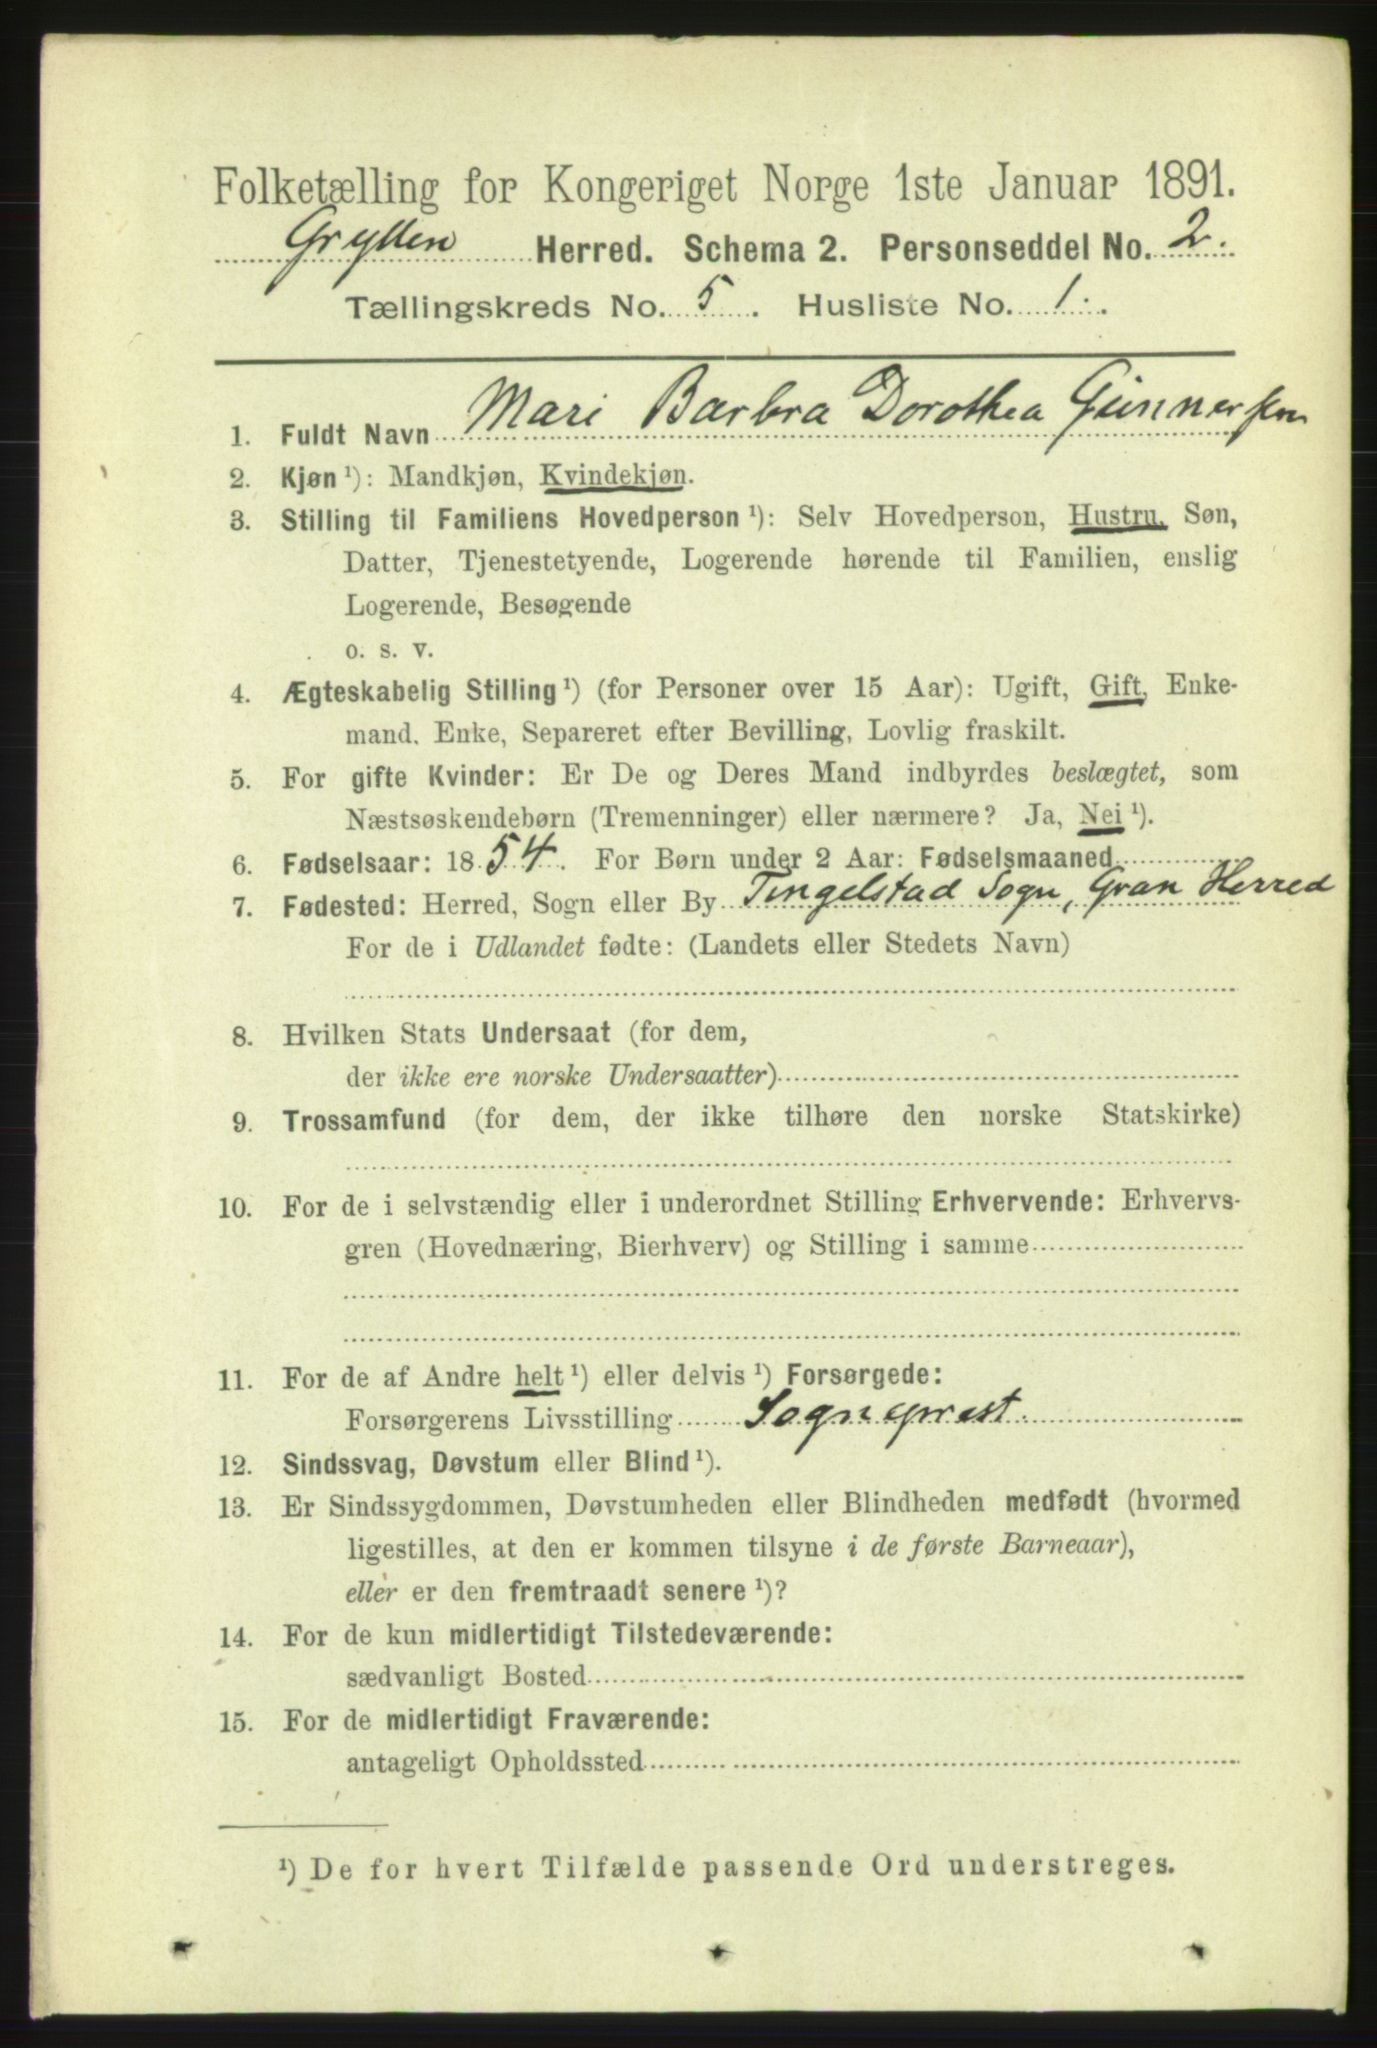 Folketælling for Kongeriget Norge 1ste Januar 1891.
Grytten Herred. Schema 2. Personseddel No. 2.
Tællingskreds No. 5. Husliste No. 1.
1. Fuldt Navn Mari Barbra Dorothea Gunnersen
2. Kjøn ¹): Mandkjøn, Kvindekjøn.
3. Stilling til Familiens Hovedperson ¹): Selv Hovedperson, Hustru, Søn,
Datter, Tjenestetyende, Logerende hørende til Familien, enslig
Logerende, Besøgende
o. s. v.
4. Ægteskabelig Stilling ¹) (for Personer over 15 Aar): Ugift, Gift, Enke-
mand. Enke, Separeret efter Bevilling, Lovlig fraskilt.
5. For gifte Kvinder: Er De og Deres Mand indbyrdes beslægtet, som
Næstsøskendebørn (Tremenninger) eller nærmere? Ja, Nei ¹).
6. Fødselsaar: 1854. For Børn under 2 Aar: Fødselsmaaned
7. Fødested: Herred, Sogn eller By Tingelstad Sogn, Gran Herred
For de i Udlandet fødte: (Landets eller Stedets Navn)
8. Hvilken Stats Undersaat (for dem,
der ikke ere norske Undersaatter)
9. Trossamfund (for dem, der ikke tilhøre den norske Statskirke)
10. For de i selvstændig eller i underordnet Stilling Erhvervende: Erhvervs-
gren (Hovednæring, Bierhverv) og Stilling i samme
11. For de af Andre helt ¹) eller delvis ¹) Forsørgede:
Forsørgerens Livsstilling Sogneprest.
12. Sindssvag, Døvstum eller Blind ¹).
13. Er Sindssygdommen, Døvstumheden eller Blindheden medfødt (hvormed
ligestilles, at den er kommen tilsyne i de første Barneaar),
eller er den fremtraadt senere ¹)?
14. For de kun midlertidigt Tilstedeværende:
sædvanligt Bosted
15. For de midlertidigt Fraværende:
antageligt Opholdssted
¹) De for hvert Tilfælde passende Ord understreges.